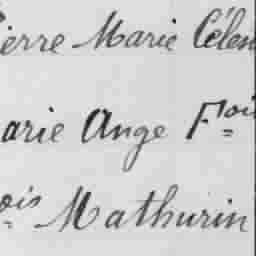 ierre Marie Célen
arie Ange Fois
ois Mathurin